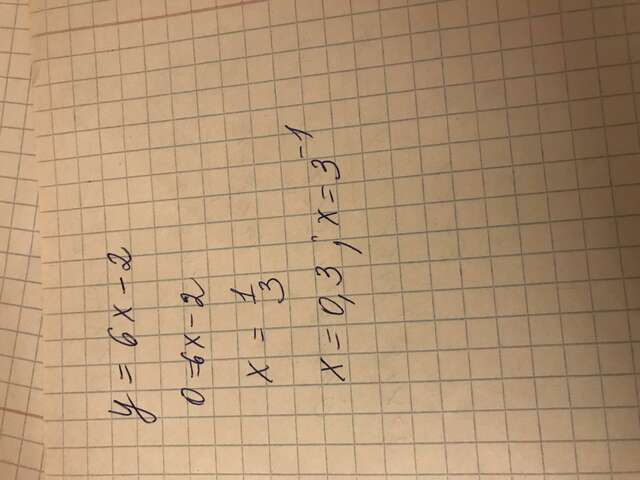 y = 6x - 2
0 = 6x - 2
x = 1/3
x = 0,3 ; x = 3⁻¹